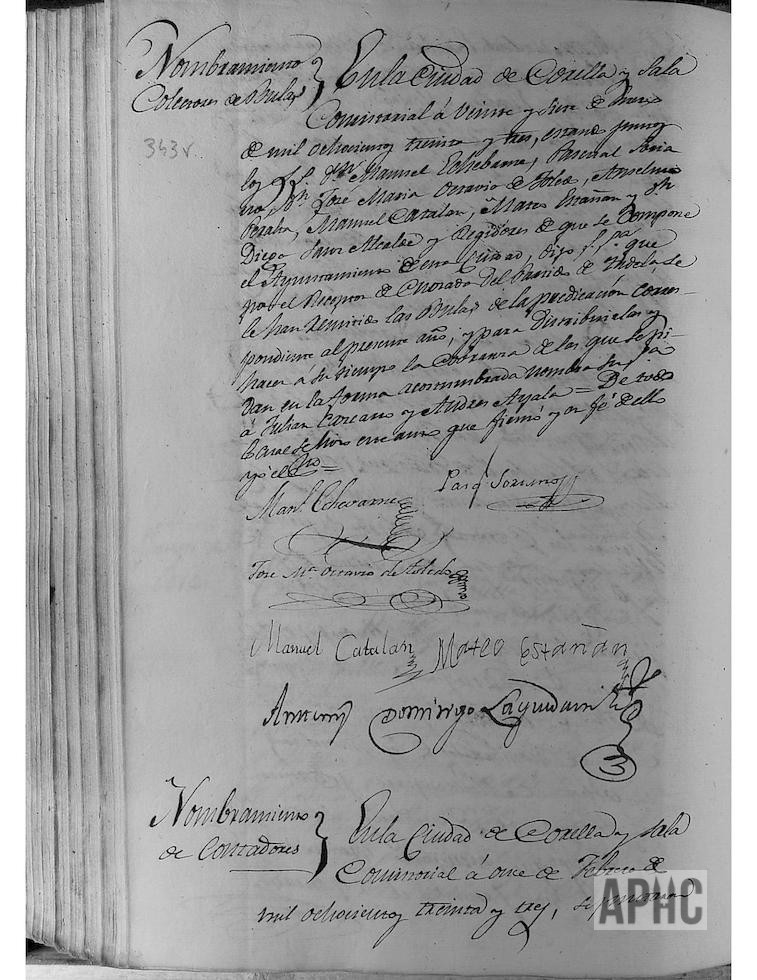 Nombramiento
Colectores de Bulas
343v
En la Ciudad de Corella y Sala
Consistorial á veinte y siete de Enero
de mil ochocientos treinta y tres, estando juntos
los SS. Dn. Manuel Echebarria, Pascual Soria
no, Dn. José Maria Octavio de Toledo, Anselmo
Peralta, Manuel Catalan, Mateo Estañan y Dn
Diego Sanz Alcalde y Regidores de que se compone
el Ayuntamiento de esta Ciudad, dijo S. Sa. que
por el Receptor de Cruzada del Partido de Tudela, se
le han remitido las Bulas de la predicación corres-
pondiente al presente año, y para distribuirlas y
hacer á su tiempo la cobranza de las que se pi
dan en la forma acostumbrada nombra Su Sa
á Julian y Andres Ayala = De todo
lo cual se hizo este auto que firmó y en fé de ello
yo el Sno =
Manl. Echevarria
Pasql Soriano
Jose Ma. Octavio de Toledo
Manuel Catalan
Mateo Estañan
Antemi
Domingo Laquidain
Nombramiento
de Contadores
En la Ciudad de Corella y Sala
Consistorial á once de Febrero de
mil ochocientos treinta y tres, se juntaron
APHC